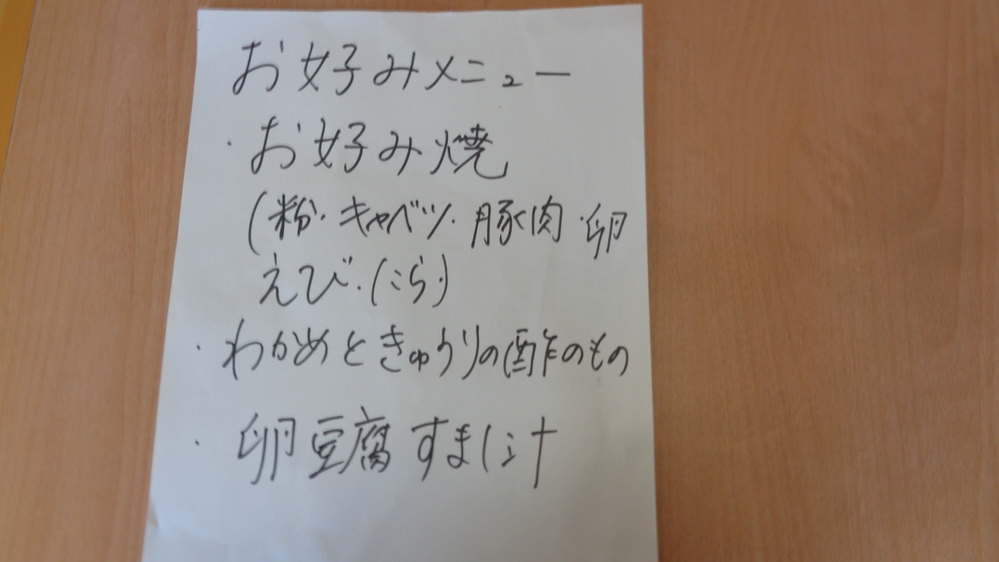 お好みメニュー
・お好み焼
(粉・キャベツ・豚肉・卵
えび・(にら)
・わかめときゅうりの酢のもの
・卵豆腐すまし汁